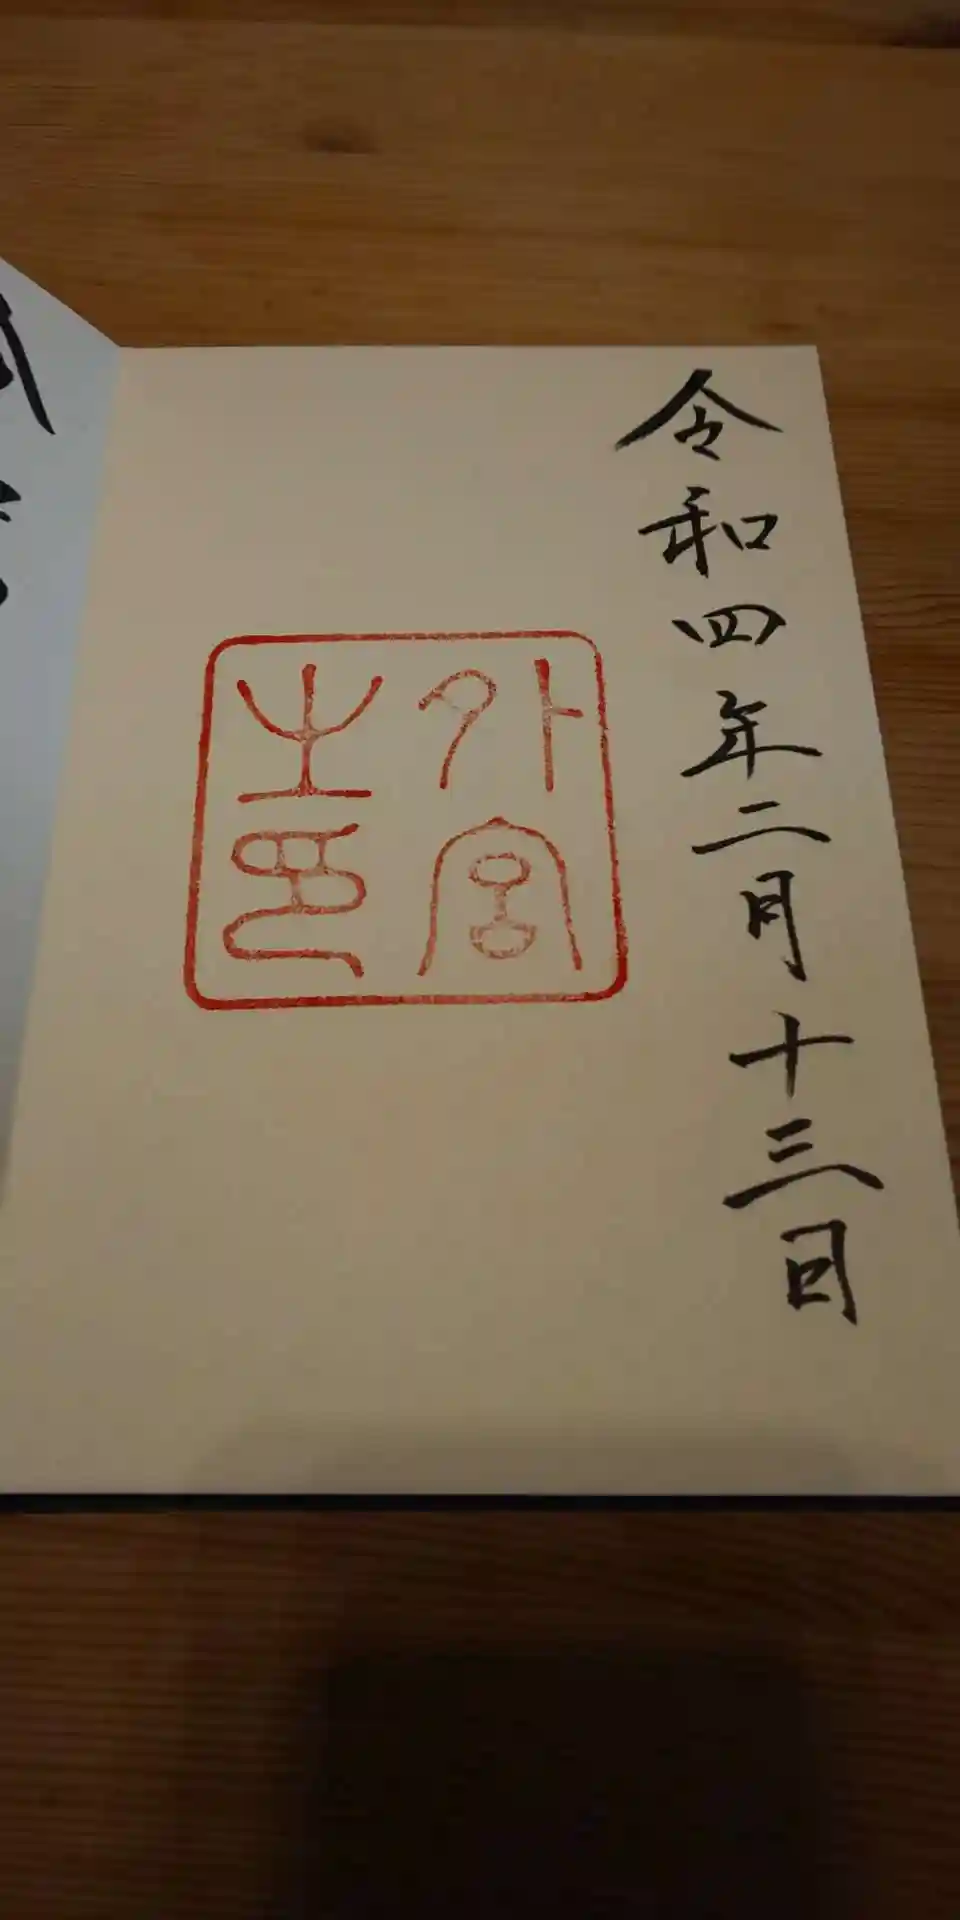 令和四年二月十三日
外宮
之印